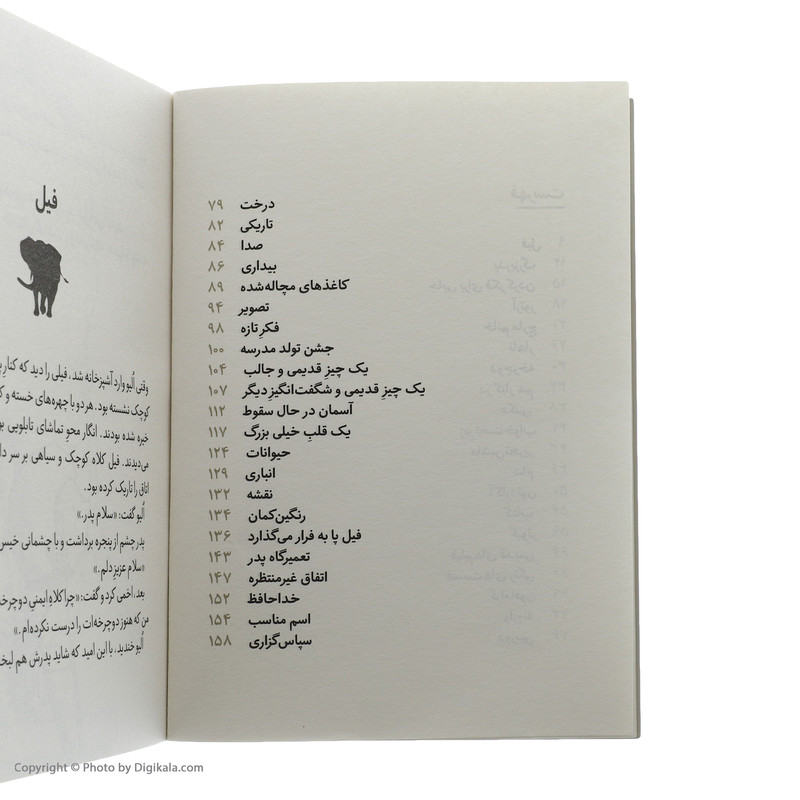 درخت ۷۹
تاریکی ۸۲
صدا ۸۴
بیداری ۸۶
کاغذهای مچاله‌شده ۸۹
تصویر ۹۴
فکرِ تازه ۹۸
جشن تولد مدرسه ۱۰۰
یک چیزِ قدیمی و جالب ۱۰۴
یک چیزِ قدیمی و شگفت‌انگیزِ دیگر ۱۰۷
آسمان در حال سقوط ۱۱۲
یک قلبِ خیلی بزرگ ۱۱۷
حیوانات ۱۲۴
انباری ۱۲۹
نقشه ۱۳۲
رنگین‌کمان ۱۳۴
فیل پا به فرار می‌گذارد ۱۳۶
تعمیرگاه پدر ۱۴۳
اتفاق غیرمنتظره ۱۴۷
خداحافظ ۱۵۲
اسم مناسب ۱۵۴
سپاس‌گزاری ۱۵۸
فیل
وقتی اُلیو وارد آشپزخانه شد، فیلی را دید که کنارِ
کوچک نشسته بود. هر دو با چهره‌های خسته و
خیره شده بودند. انگار محوِ تماشای تابلویی
می‌دیدند. فیل کلاه کوچک و سیاهی بر سر
اتاق را تاریک کرده بود.
اُلیو گفت: «سلام پدر.»
پدر چشم از پنجره برداشت و با چشمانی خیس
«سلام عزیز دلم.»
بعد، اخمی کرد و گفت: «چرا کلاهِ ایمنیِ دوچرخه
من که هنوز دوچرخه‌ات را درست نکرده‌ام.»
اُلیو خندید، با این امید که شاید پدرش هم
Copyright © Photo by Digikala.com